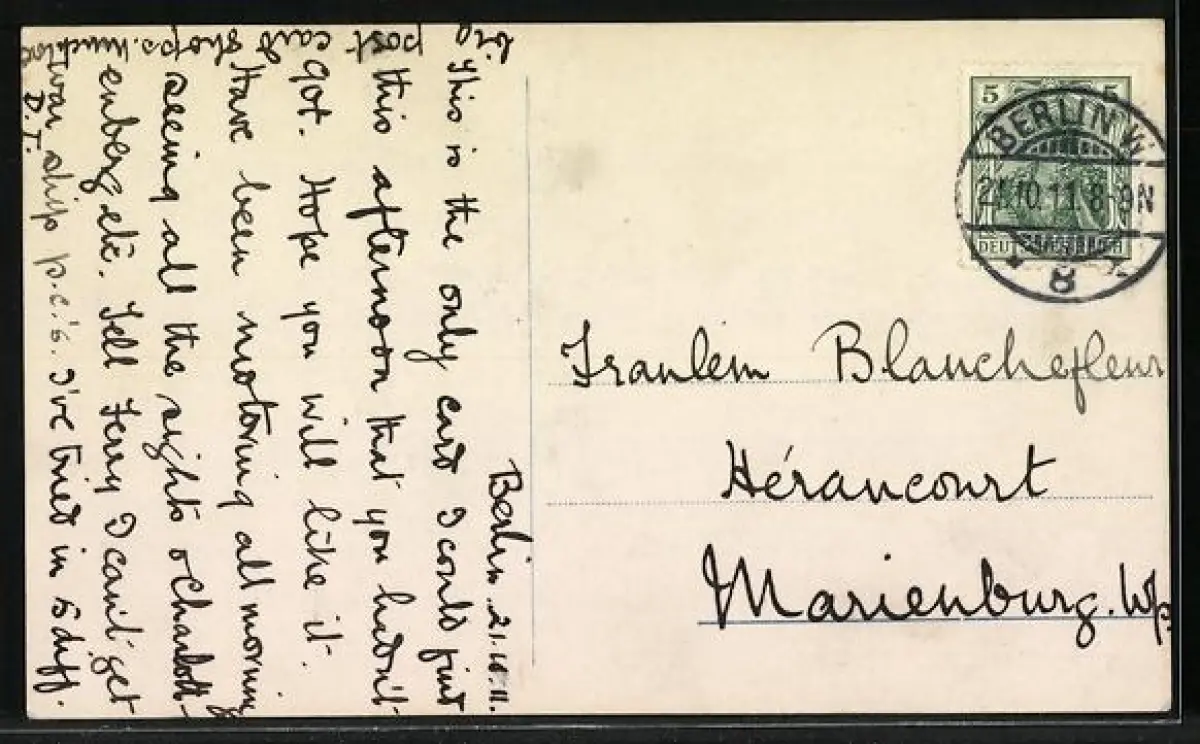 Berlin. 21.10.11.
This is the only card I could find
this afternoon that you hadn't
got. Hope you will like it.
Have been motoring all morning
seeing all the sights & Charlott-
enberg etc. Tell Terry I can't get
war ship p.c.'s. I've tried in 5 diff.
big post card shops. Much love
D.T.
5 5
DEUTSCHES REICH
BERLIN W.
21.10.11.8-9N
8
Fraulein Blanchefleur
Hérancourt
Marienburg. Wp.